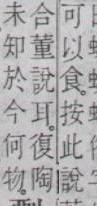 可以食。按此說
合董說耳。復陶
未知於今何物。